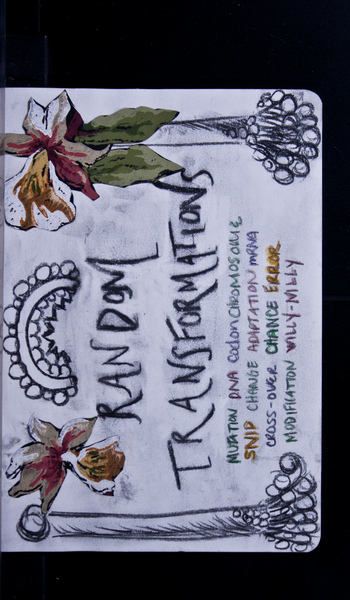 RANDOM
TRANSFORMATIONS
MUTATION DNA codon CHROMOSOME
SNIP CHANGE ADAPTATION mRNA
CROSS-OVER CHANCE ERROR
MODIFICATION WILLY-NILLY